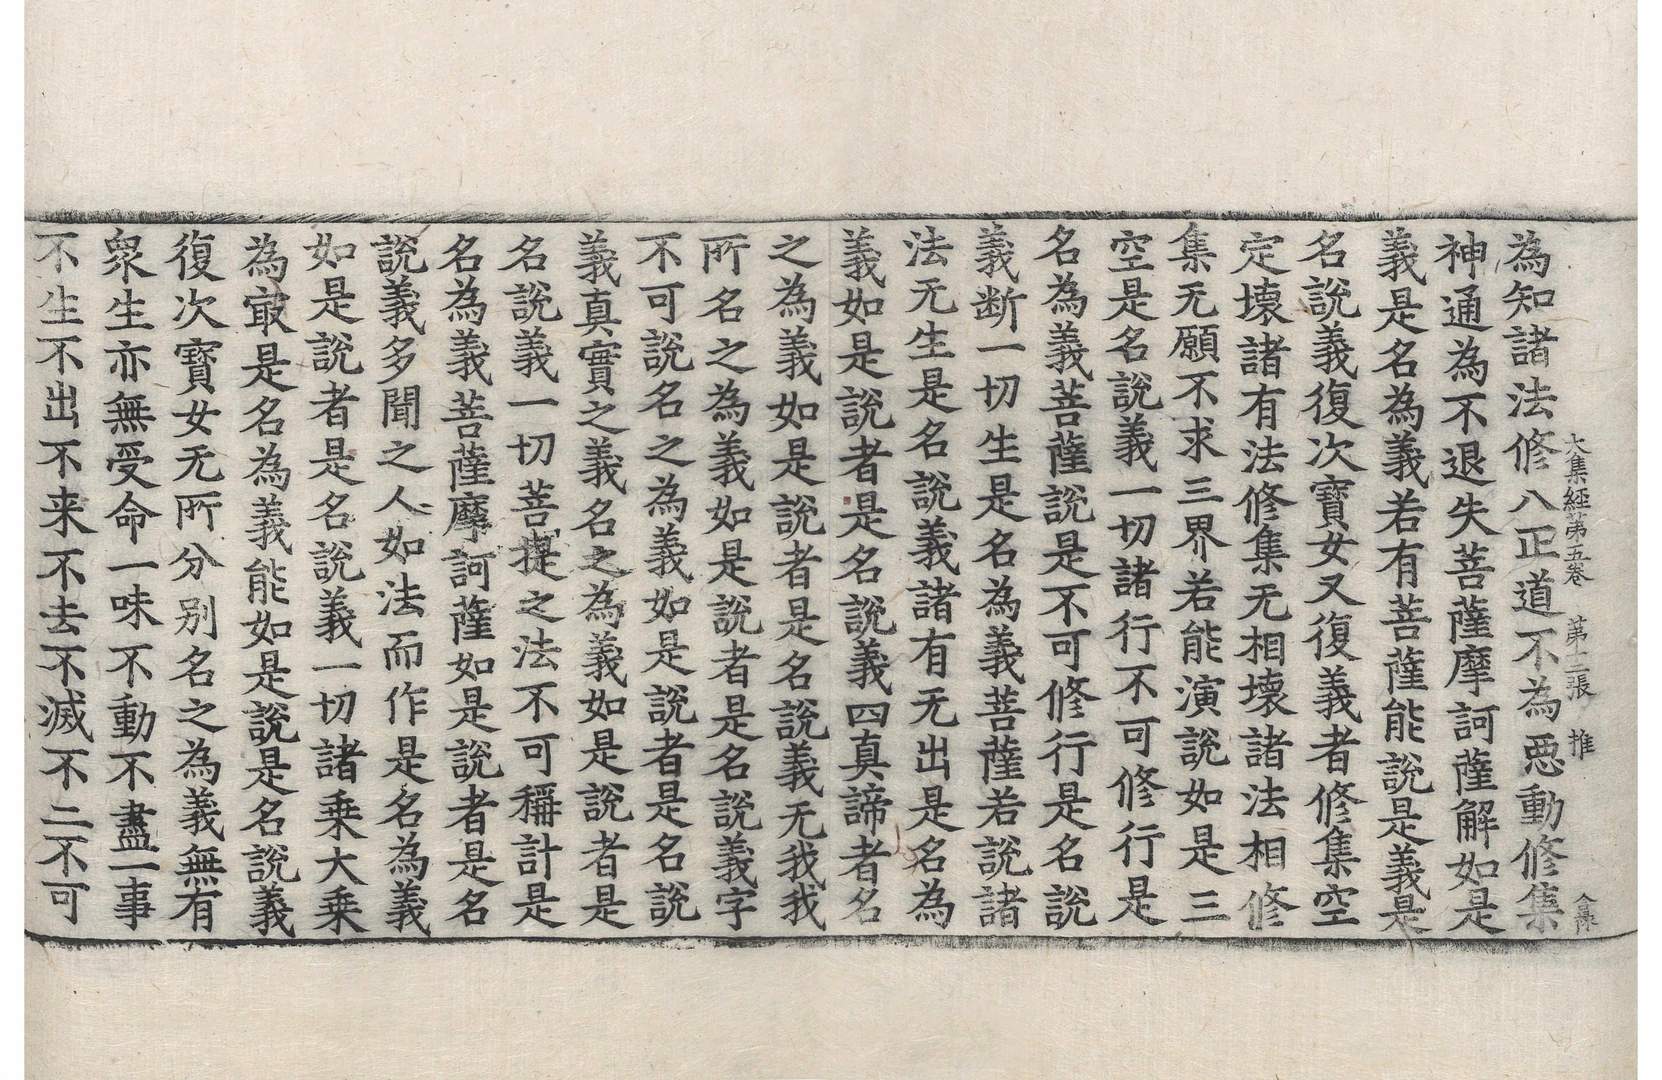 大集經苐五卷 第十二張 推
為知諸法修八正道不為惡動修集
神通為不退失菩薩摩訶薩解如是
義是名為義若有菩薩能說是義是
名說義復次寶女又復義者修集空
定壞諸有法修集无相壞諸法相修
集无願不求三界若能演說如是三
空是名說義一切諸行不可修行是
名為義菩薩說是不可修行是名說
義断一切生是名為義菩薩若說諸
法无生是名說義諸有无出是名為
義如是說者是名說義四真諦者名
之為義如是說者是名說義无我我
所名之為義如是說者是名說義字
不可說名之為義如是說者是名說
義真實之義名之為義如是說者是
名說義一切菩提之法不可稱計是
名為義菩薩摩訶薩如是說者是名
說義多聞之人如法而作是名為義
如是說者是名說義一切諸乘大乘
為㝡是名為義能如是說是名說義
復次寶女无所分別名之為義無有
眾生亦無受命一味不動不盡一事
不生不出不来不去不滅不二不可